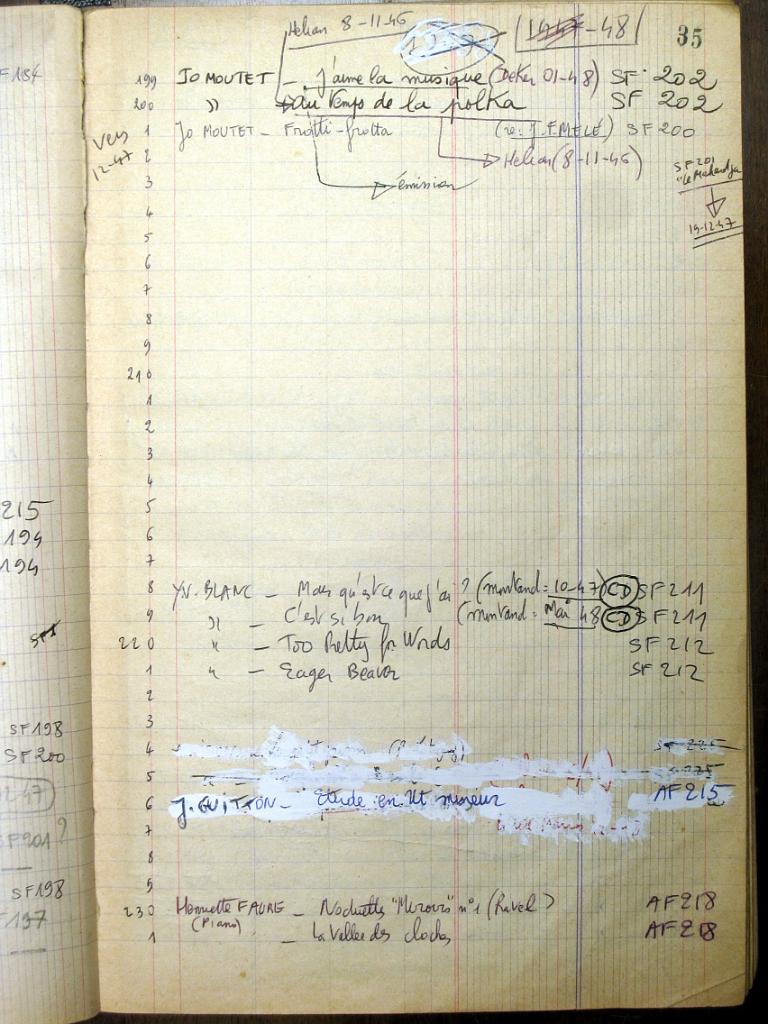 Helian 8-11-46
1947-48 35
F 184
199 JO MOUTET - j'aime la musique (Deker 01-48) SF 202
200 " au temps de la polka SF 202
1 Jo MOUTET - Frotti-frotta (re: J.F.MELÉ) SF 200
Vers 12-47
2 Helian (8-11-46)
SF 201
3 émission
4
19-12-47
5
6
7
8
9
210
1
2
3
4
5
215
6
194
7
194
8 YV. BLANC - Mais qu'est ce que j'ai ? (montand = 10-47) CD SF 211
9 " - C'est si bon (montand = Mai 48 CD SF 211
220 " - Too Pretty for Words SF 212
1 " - Eager Beaver SF 212
2
3
SF 198
4 SF 225
SF 200
5
6 J. GUITTON - Etude en Ut mineur AF 215
7
SF 201 ?
8
9
SF 198
230 Henriette FAURE - Noctuelles "Miroirs" n°1 (Ravel) AF 218
(Piano)
F 197
1 - La Vallée des cloches AF 218